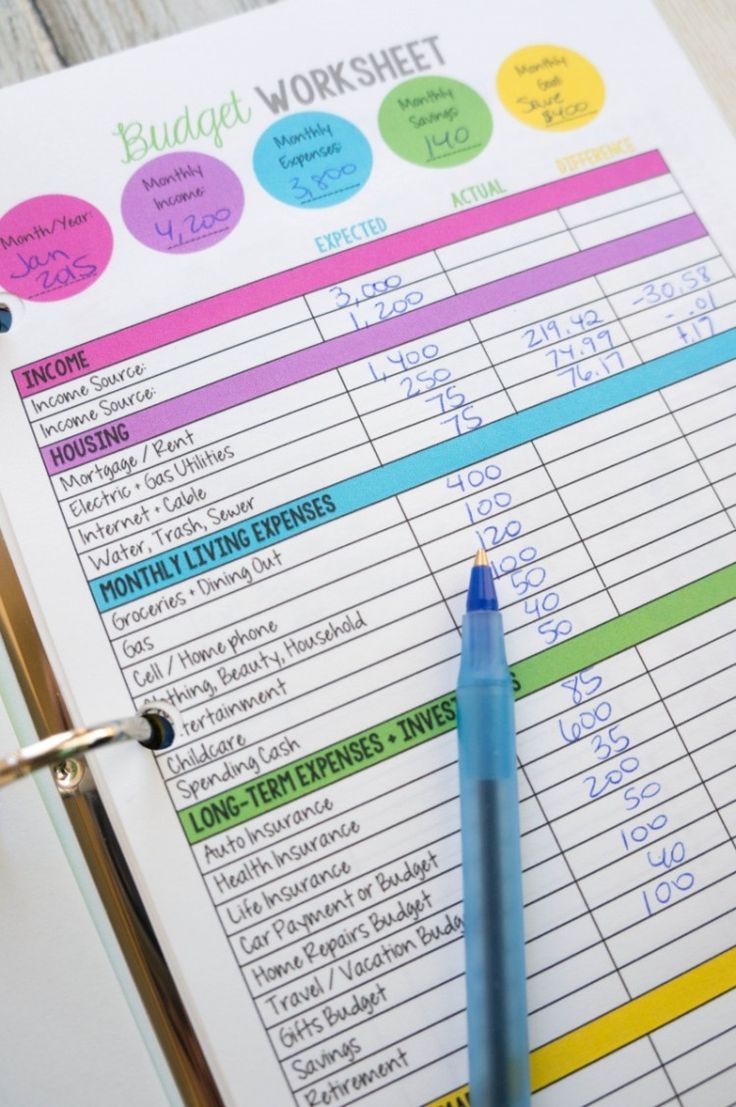 Budget WORKSHEET
Month/Year:
Jan
2015
Monthly
Income:
4,200
Monthly
Expenses:
3,800
Monthly
Savings:
140
Monthly
Goal:
Save
$400
EXPECTED ACTUAL DIFFERENCE
INCOME
Income Source: 3,000
Income Source: 1,200
HOUSING
Mortgage / Rent 1,400
Electric + Gas Utilities 250 219.42 -30.58
Internet + Cable 75 74.99 -.01
Water, Trash, Sewer 75 76.17 +.17
MONTHLY LIVING EXPENSES
Groceries + Dining Out 400
Gas 100
Cell / Home phone 120
lothing, Beauty, Household 100
tertainment 50
Childcare 40
Spending Cash 50
LONG-TERM EXPENSES + INVEST S
Auto Insurance 85
Health Insurance 600
Life Insurance 35
Car Payment or Budget 200
Home Repairs Budget 50
Travel / Vacation Budg 100
Gifts Budget 40
Savings 100
Retirement